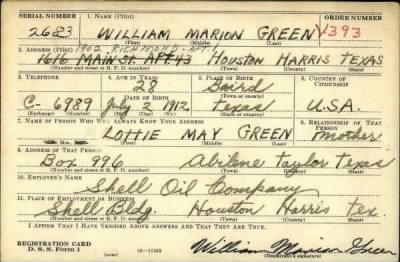 SERIAL NUMBER 1. NAME (Print) ORDER NUMBER
2623 WILLIAM MARION GREEN V393
(First) (Middle) (Last)
2. ADDRESS (Print) 1902 RICHMOND - APT.
1616 MAIN ST. APT. 43 HOUSTON HARRIS TEXAS
(Number and street or R. F. D. number) (Town) (County) (State)
3. TELEPHONE 4. AGE IN YEARS 5. PLACE OF BIRTH 6. COUNTRY OF CITIZENSHIP
28 Baird
DATE OF BIRTH (Town or county)
C- 6989 July 2, 1912 Texas U.S.A.
(Exchange) (Number) (Mo.) (Day) (Yr.) (State or country)
7. NAME OF PERSON WHO WILL ALWAYS KNOW YOUR ADDRESS 8. RELATIONSHIP OF THAT PERSON
Mrs. LOTTIE MAY GREEN Mother
(First) (Middle) (Last)
9. ADDRESS OF THAT PERSON
Box 996 Abilene Taylor Texas
(Number and street or R. F. D. number) (Town) (County) (State)
10. EMPLOYER'S NAME
Shell Oil Company
11. PLACE OF EMPLOYMENT OR BUSINESS
Shell Bldg. Houston Harris Tex
(Number and street or R. F. D. number) (Town) (County) (State)
I AFFIRM THAT I HAVE VERIFIED ABOVE ANSWERS AND THAT THEY ARE TRUE.
REGISTRATION CARD
D. S. S. Form 1 (over) 16-17105 William Marion Green
(Registrant's signature)